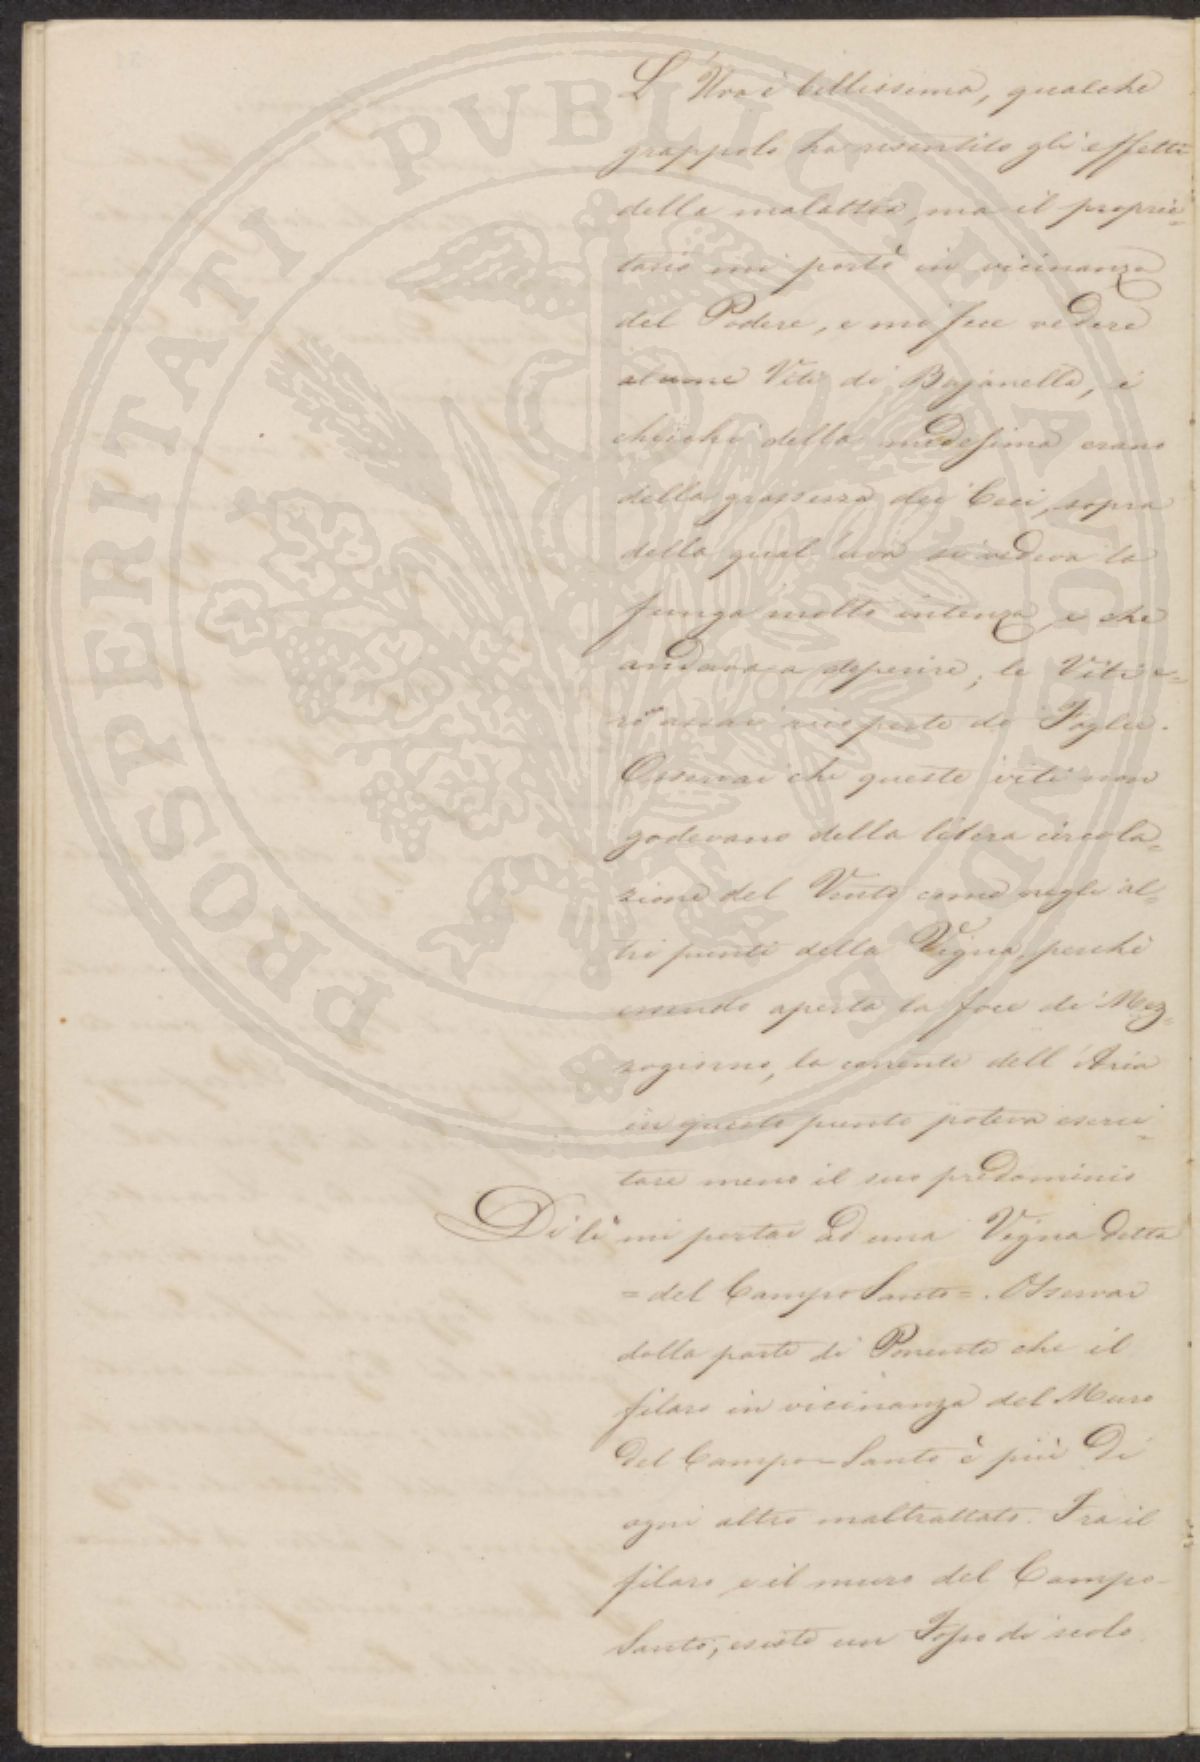 L'Uva è bellissima, qualche
grappolo ha risentito gli effetti
della malattia, ma il proprie=
tario mi portò in vicinanza
del Podere, e mi fece vedere
alcune Viti di Bajanella, i
chicchi della medesima erano
della grossezza dei Ceci, sopra
della qual'uva si vedeva la
funga molto intenza, e che
andava a deperire; le Viti e=
rono assai ricoperte di Foglie.
Osservai che queste viti non
godevano della libera circola=
zione del Vento come negli al=
tri punti della Vigna, perchè
essendo aperta la foce di Mez=
zogiorno, la corrente dell'Aria
in questo punto poteva eserci=
tare meno il suo predominio
Di lì mi portai ad una Vigna detta
=del Campo Santo=. Osservai
dalla parte di Ponente che il
filaro in vicinanza del Muro
del Campo-Santo è più di
ogni altro maltrattato. Fra il
filaro e il muro del Campo-
Santo, esiste un Fosso di scolo
PROSPERITATI PVBLICAE AVGENDAE